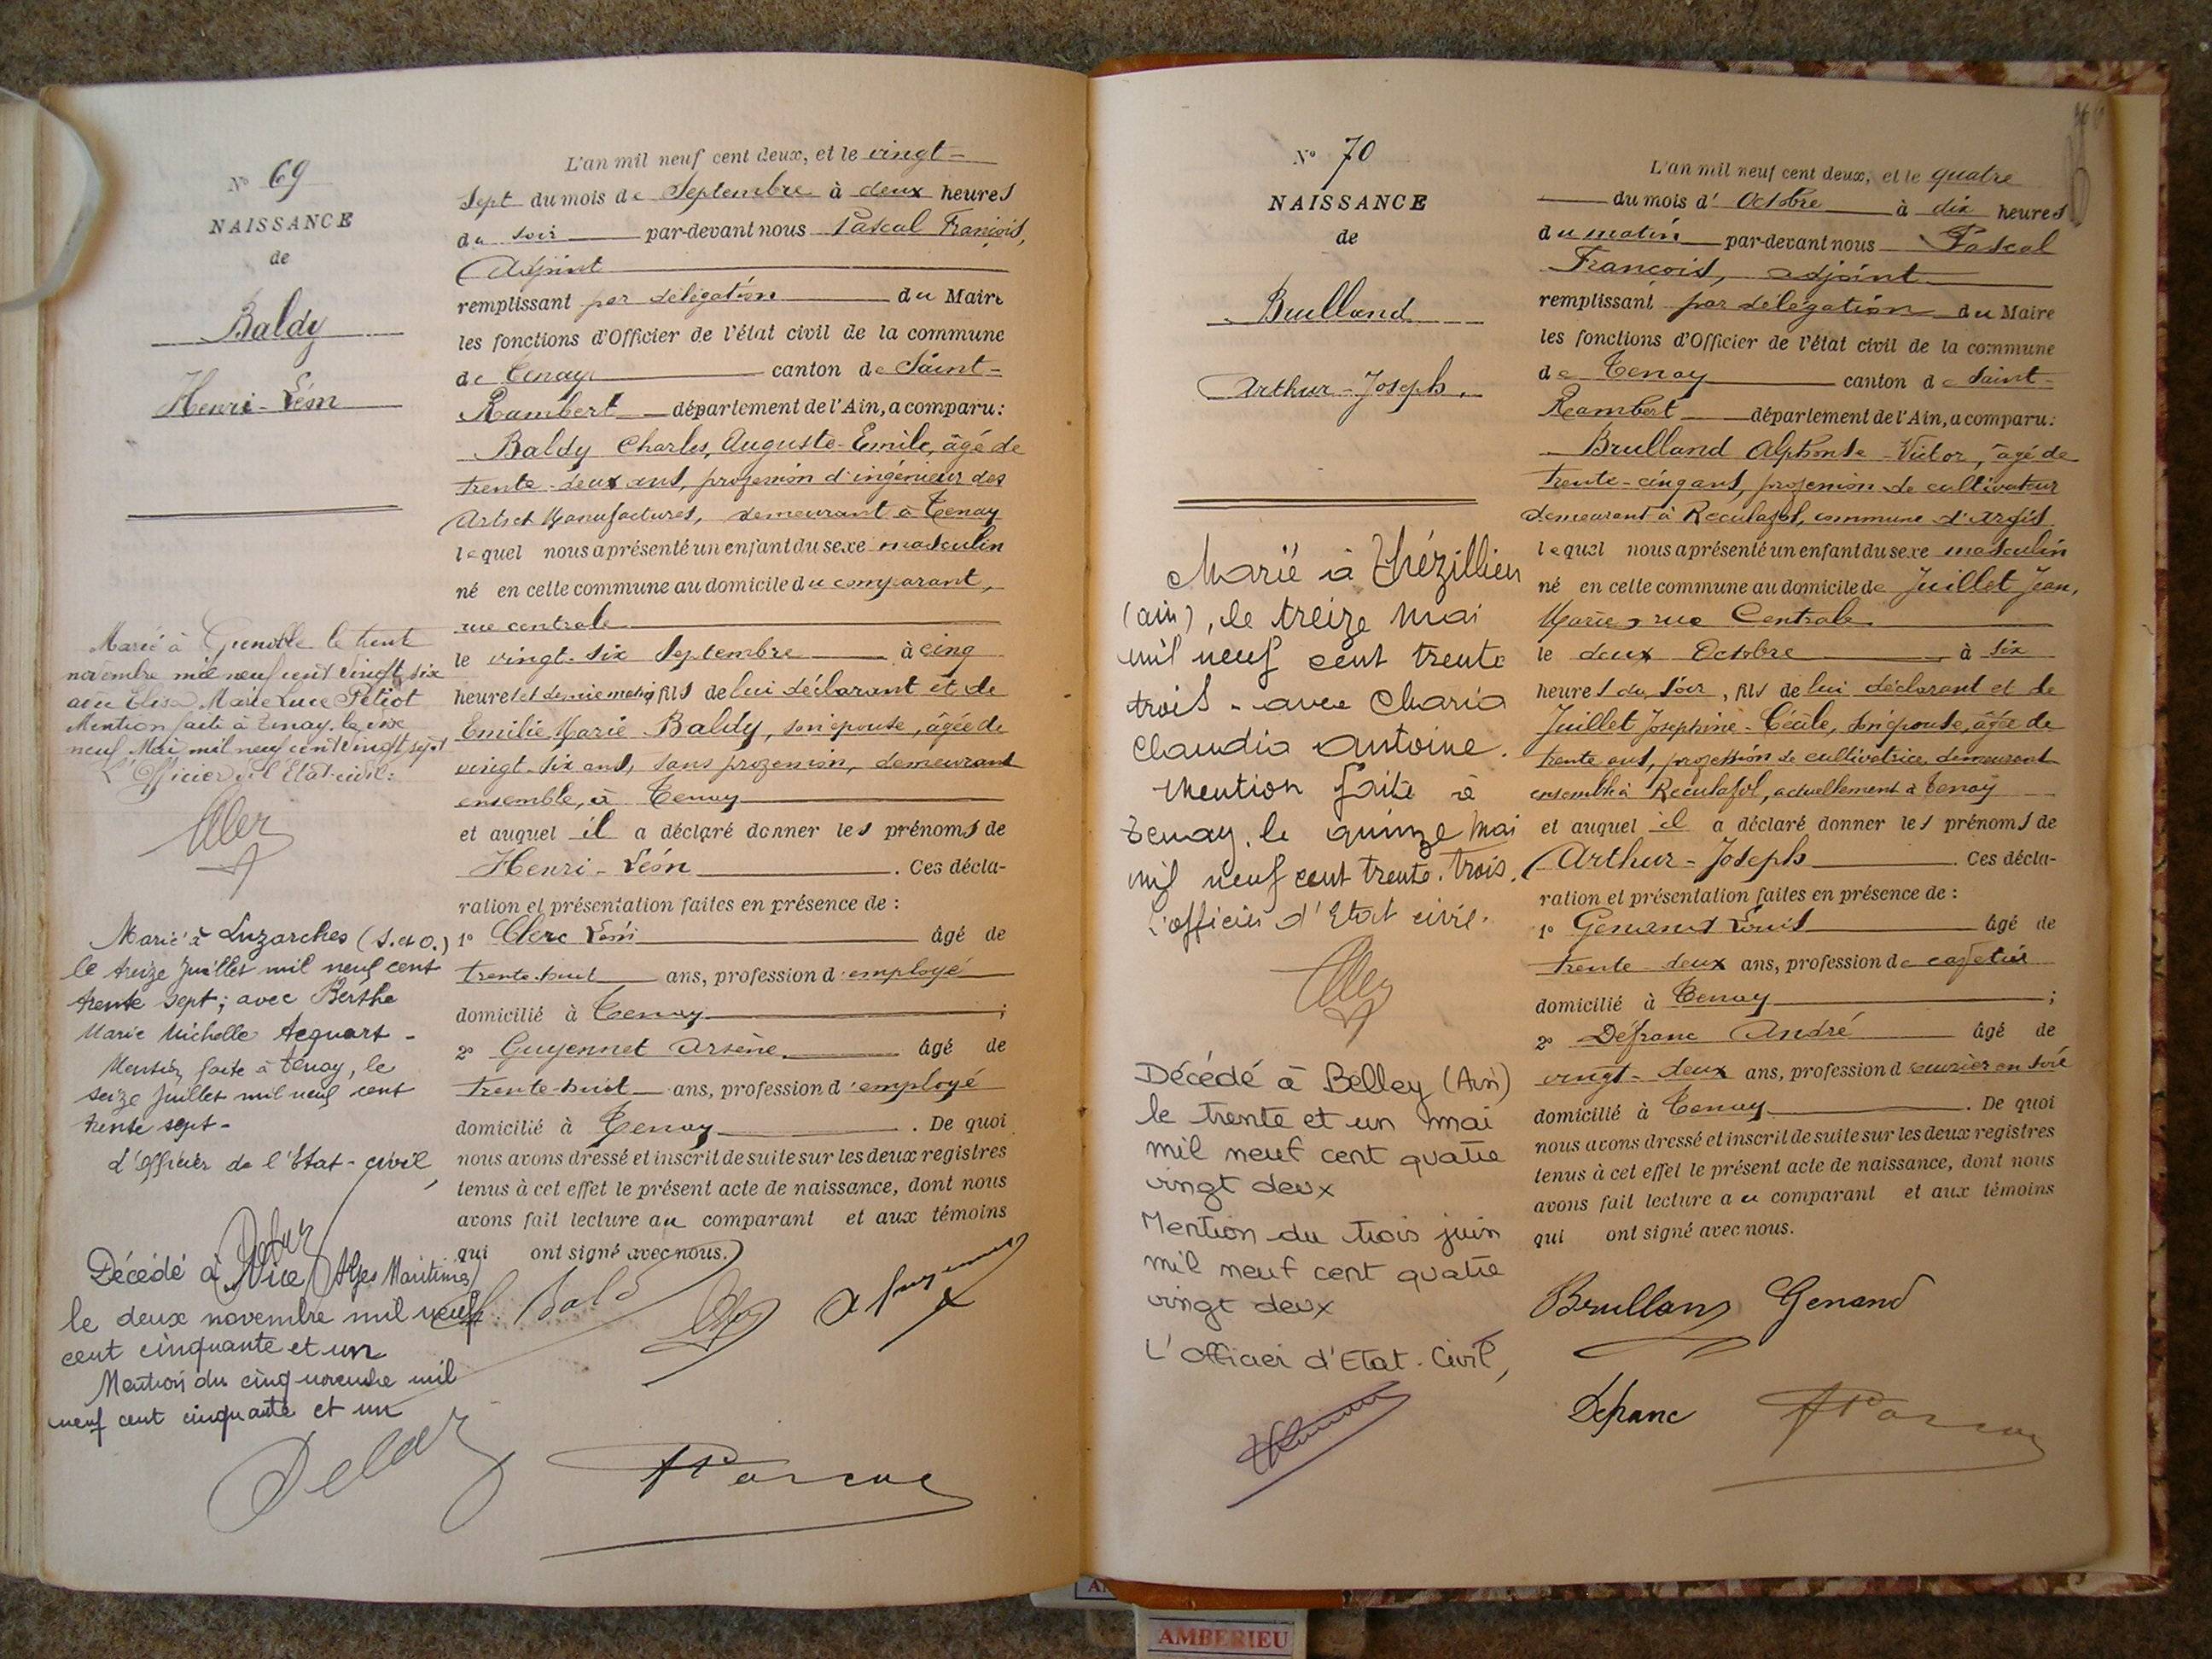 N° 69
NAISSANCE
de
Baldy
Henri-Léon
Marié à Grenoble le trente
novembre mil neuf cent vingt six
avec Elisa Marie Luce Petiot
Mention faite à Tenay, le
neuf Mai mil neuf cent vingt sept
L'Officier de l'Etat-civil:
Marié à Luzarches (S. et O.)
le treize Juillet mil neuf cent
trente sept; avec Berthe
Marie Michelle Acquart -
Mention faite à Tenay, le
seize Juillet mil neuf cent
trente sept -
L'officier de l'Etat-civil,
Décédé à Nice (Alpes Maritimes)
le deux novembre mil neuf
cent cinquante et un
Mention du cinq novembre mil
neuf cent cinquante et un
L'an mil neuf cent deux, et le vingt-
sept du mois de Septembre à deux heures
du soir par-devant nous Pascal François,
Adjoint
remplissant par délégation du Maire
les fonctions d'Officier de l'état civil de la commune
de Tenay canton de Saint-
Rambert département de l'Ain, a comparu:
Baldy Charles, Auguste-Emile, âgé de
trente-deux ans, profession d'ingénieur des
Arts et Manufactures, demeurant à Tenay
lequel nous a présenté un enfant du sexe masculin
né en cette commune au domicile du comparant,
rue centrale
le vingt-six Septembre à cinq
heures et demie matin, fils de lui déclarant et de
Emilie Marie Baldy, son épouse, âgée de
vingt-six ans, sans profession, demeurant
ensemble, à Tenay
et auquel il a déclaré donner les prénoms de
Henri-Léon. Ces décla-
ration et présentation faites en présence de:
1° Clerc Léon âgé de
trente-huit ans, profession d'employé
domicilié à Tenay;
2° Guyennet Arsène, âgé de
trente-huit ans, profession d'employé
domicilié à Tenay. De quoi
nous avons dressé et inscrit de suite sur les deux registres
tenus à cet effet le présent acte de naissance, dont nous
avons fait lecture au comparant et aux témoins
qui ont signé avec nous.
N° 70
NAISSANCE
de
Brulland
Arthur-Joseph.
Marié à Thézillieu
(ain), le treize mai
mil neuf cent trente
trois - avec Charia
Claudia Antoine.
Mention faite à
Tenay, le quinze mai
mil neuf cent trente-trois.
L'officier d'Etat civil.
Décédé à Belley (Ain)
le trente et un mai
mil neuf cent quatre
vingt deux
Mention du trois juin
mil neuf cent quatre
vingt deux
L'officier d'Etat-Civil,
L'an mil neuf cent deux, et le quatre
du mois d'Octobre à dix heures
du matin par-devant nous Pascal
François, adjoint
remplissant par délégation du Maire
les fonctions d'Officier de l'état civil de la commune
de Tenay canton de Saint-
Rambert département de l'Ain, a comparu:
Brulland Alphonse-Victor, âgé de
trente-cinq ans, profession de cultivateur
demeurant à Reculafol, commune d'Argis
lequel nous a présenté un enfant du sexe masculin
né en cette commune au domicile de Juillet Jean,
Marie, rue Centrale
le deux Octobre à six
heures du soir, fils de lui déclarant et de
Juillet Josephine-Cécile, son épouse, âgée de
trente ans, profession de cultivatrice, demeurant
ensemble à Reculafol, actuellement à Tenay
et auquel il a déclaré donner les prénoms de
Arthur-Joseph. Ces décla-
ration et présentation faites en présence de:
1° Genand Louis âgé de
trente-deux ans, profession de cafetier
domicilié à Tenay;
2° Defranc André âgé de
vingt-deux ans, profession d'ouvrier en soie
domicilié à Tenay. De quoi
nous avons dressé et inscrit de suite sur les deux registres
tenus à cet effet le présent acte de naissance, dont nous
avons fait lecture au comparant et aux témoins
qui ont signé avec nous.
Brulland Genand
Defranc
AMBERIEU